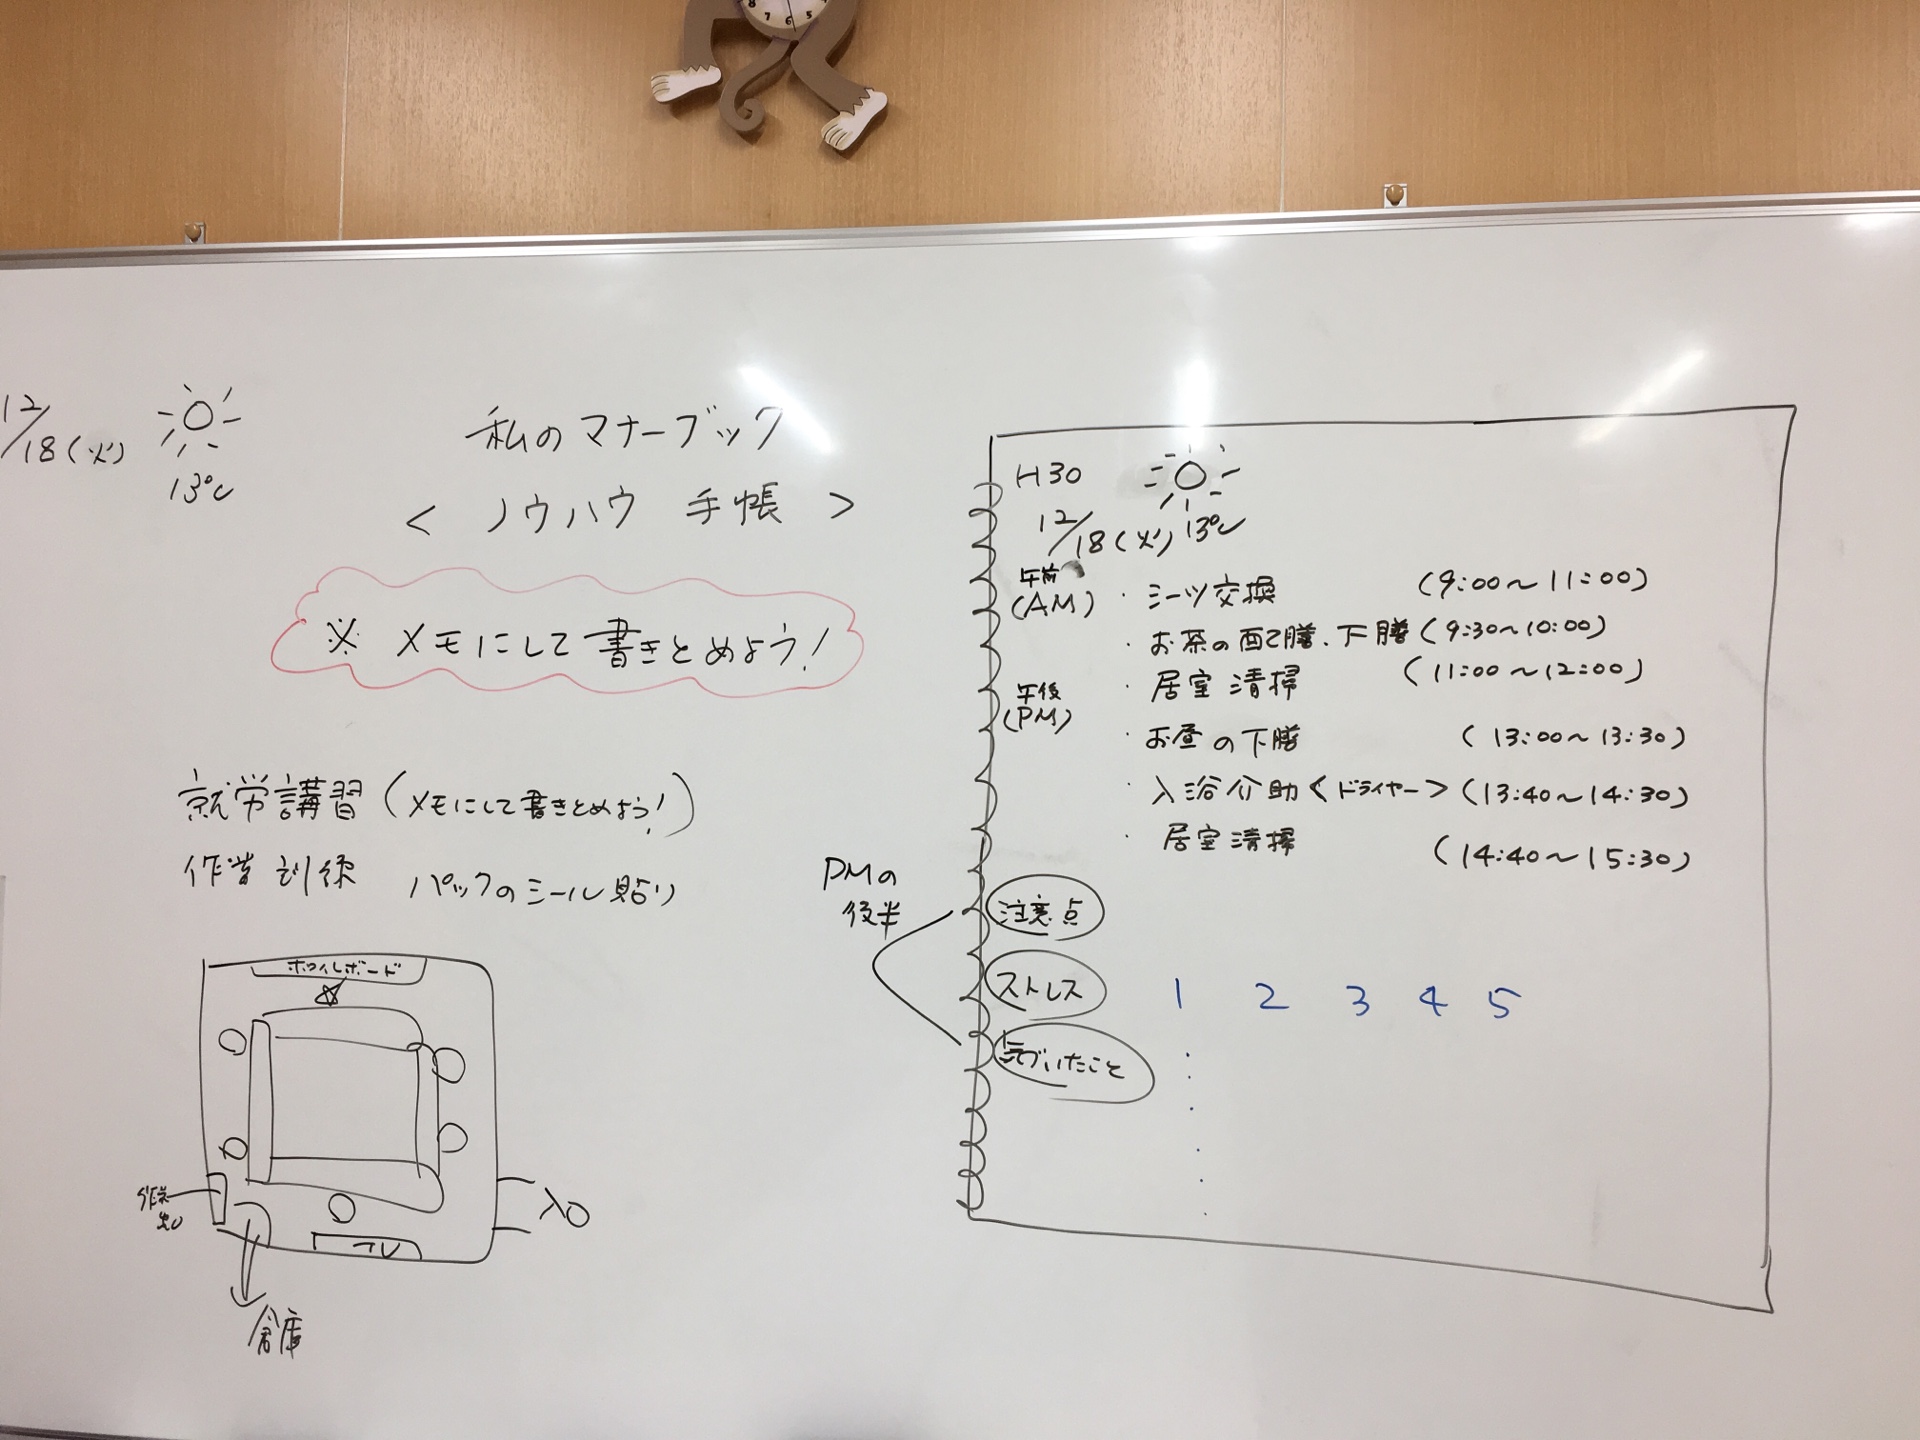 8 7 6 5
12/18(火)
13℃
私のマナーブック
< ノウハウ 手帳 >
※ メモにして書きとめよう!
就労講習(メモにして書きとめよう!)
作業訓練 パックのシール貼り
ホワイトボード
入口
テレ
倉庫
PMの
後半
H30
12/18(火) 13℃
午前
(AM)
・シーツ交換 (9:00〜11:00)
・お茶の配膳、下膳(9:30〜10:00)
・居室清掃 (11:00〜12:00)
午後
(PM)
・お昼の下膳 (13:00〜13:30)
・入浴介助<ドライヤー>(13:40〜14:30)
・居室清掃 (14:40〜15:30)
注意点
ストレス 1 2 3 4 5
気づいたこと